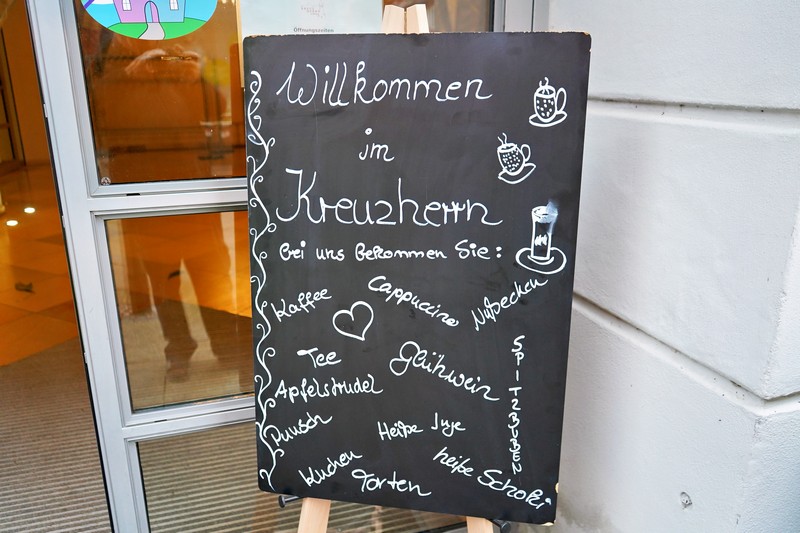 Öffnungszeiten
Willkommen
im
Kreuzherrn
Bei uns Bekommen Sie:
Kaffee
Cappuccino
Nußecken
Tee
Glühwein
SPITZBUBEN
Apfelstrudel
Punsch
Heiße Inge
heiße Schoki
Kuchen
Torten